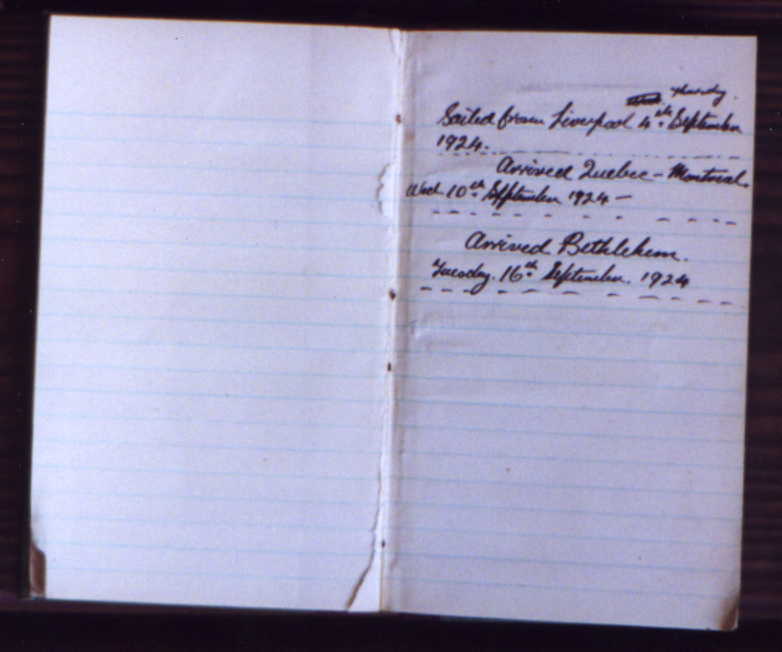 Thursday.
Sailed from Liverpool 4th September
1924.
Arrived Quebec - Montreal.
Wed 10th September 1924 -
Arrived Bethlehem.
Tuesday. 16th September. 1924